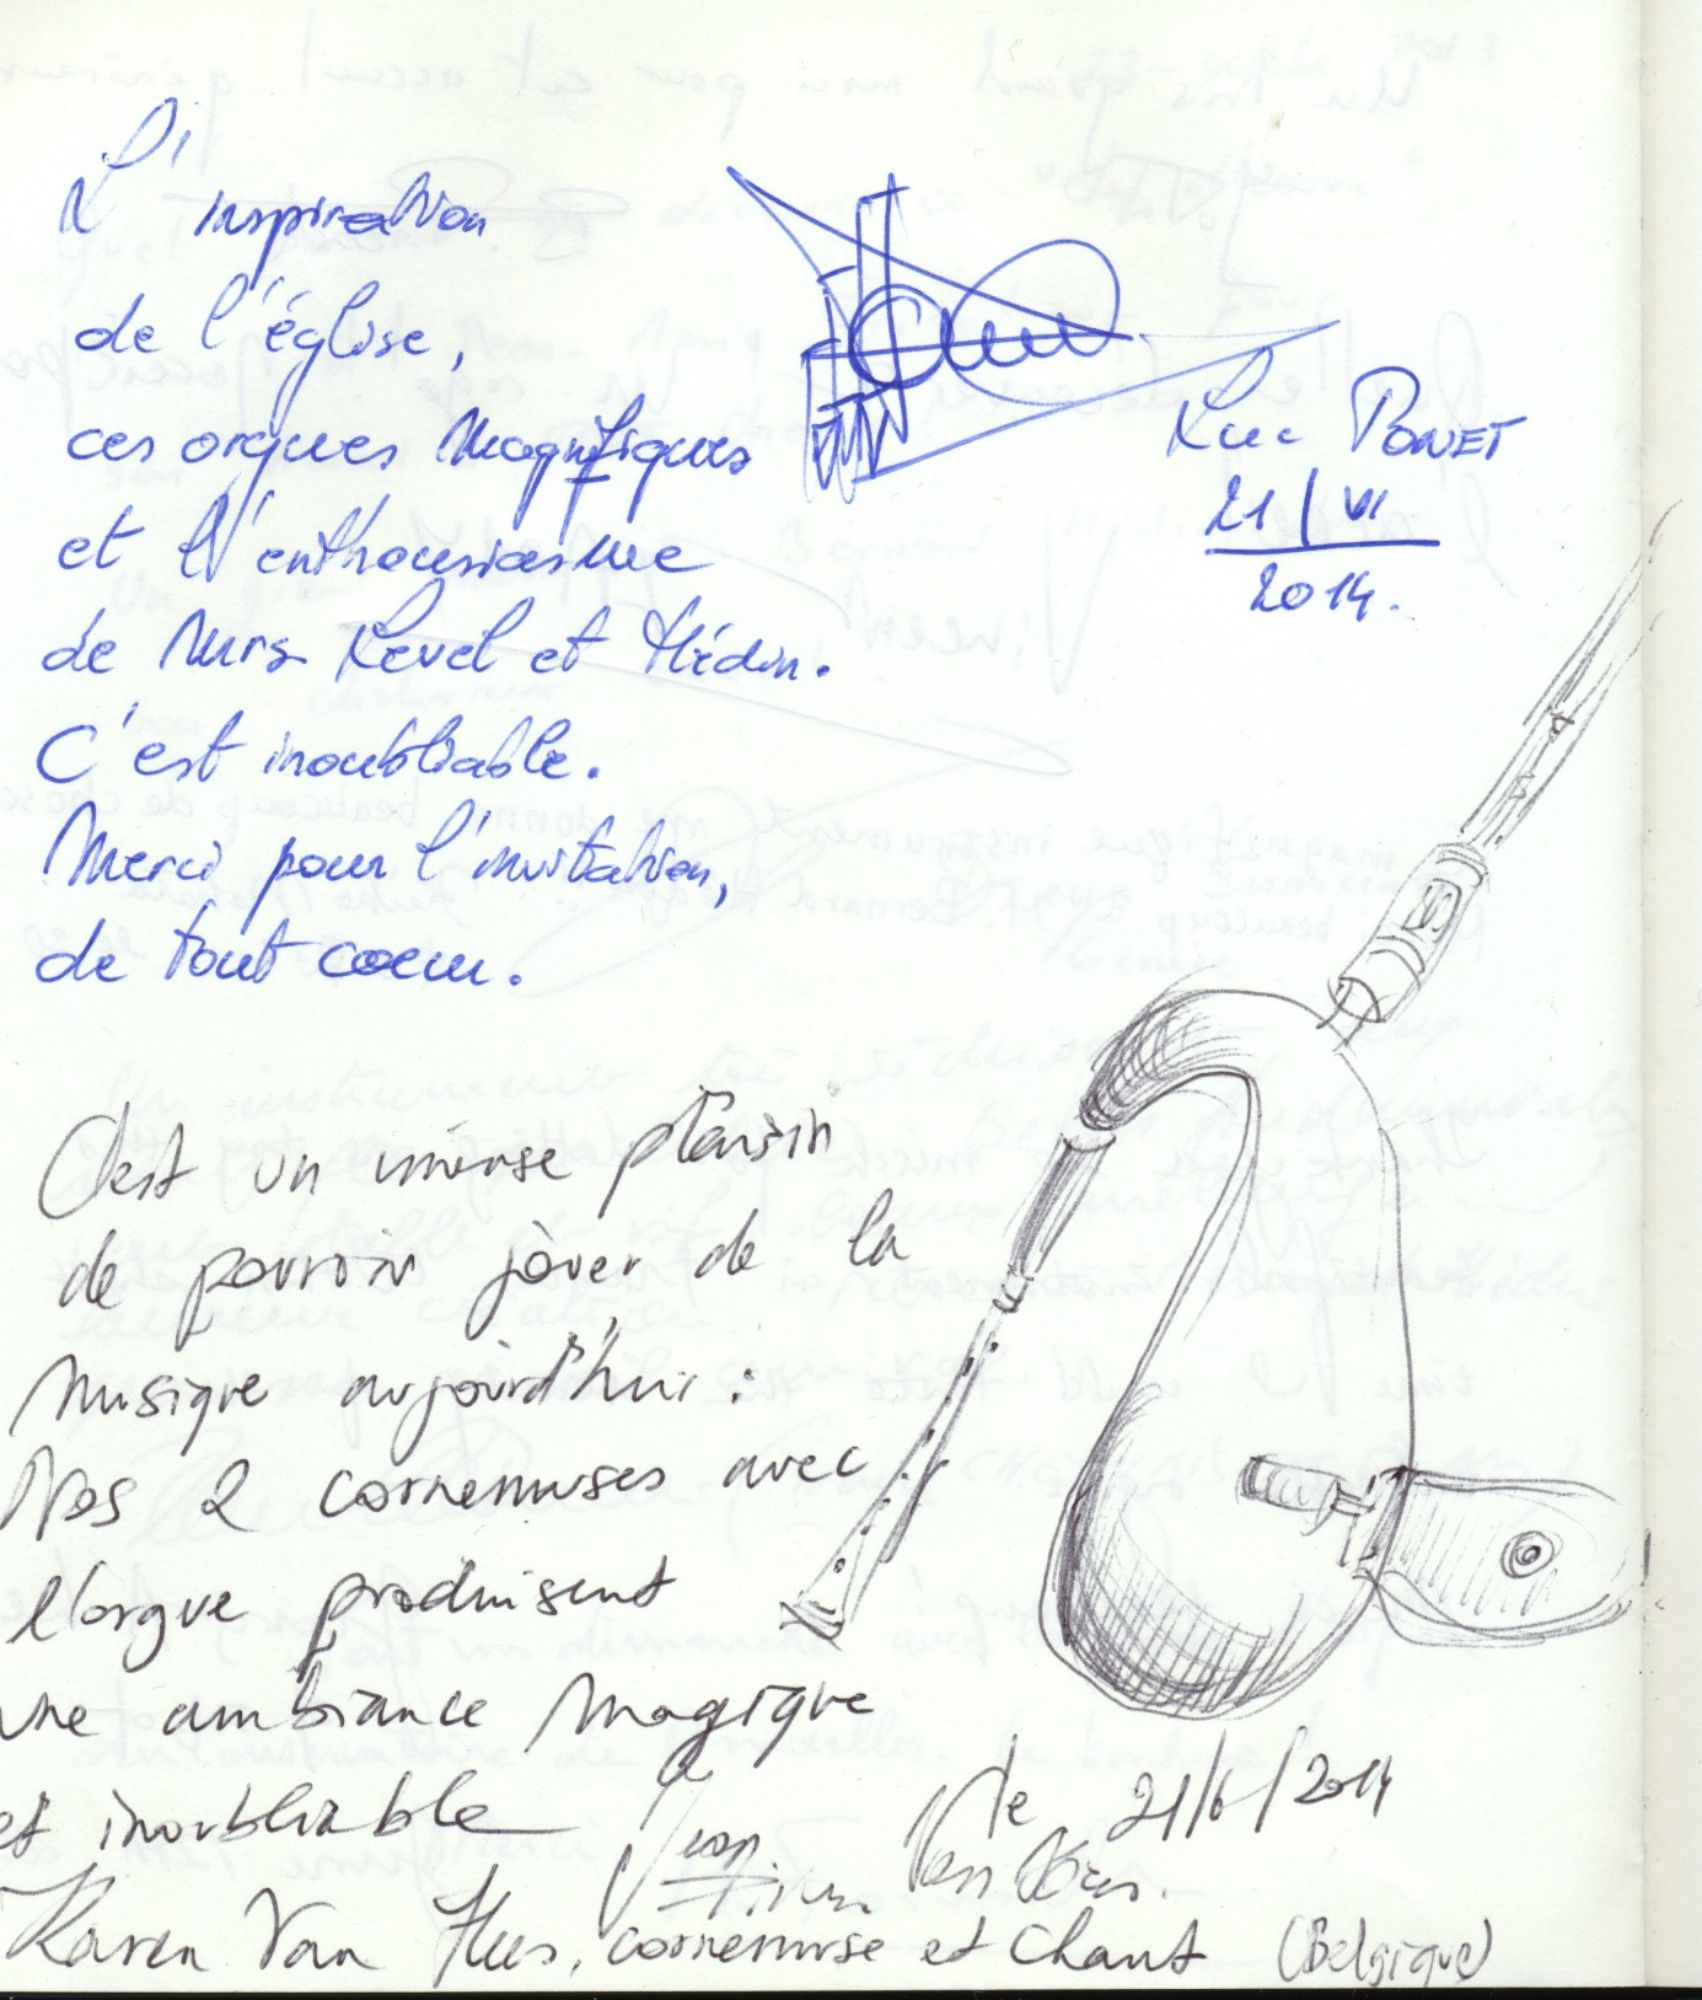 L'inspiration
de l'église,
ces orgues magnifiques
et l'enthousiasme
de Mrs Revel et Hédin.
C'est inoubliable.
Merci pour l'invitation,
de tout coeur.
Luc PONET
21/VI
2014.
C'est un imense plaisir
de pouvoir jouer de la
musique aujourd'hui :
Nos 2 cornemuses avec
l'orgue produisent
une ambiance magique
et inoubliable
le 21/6/2014
Van Hees.
Karen Van Hees, cornemuse et chant (Belgique)